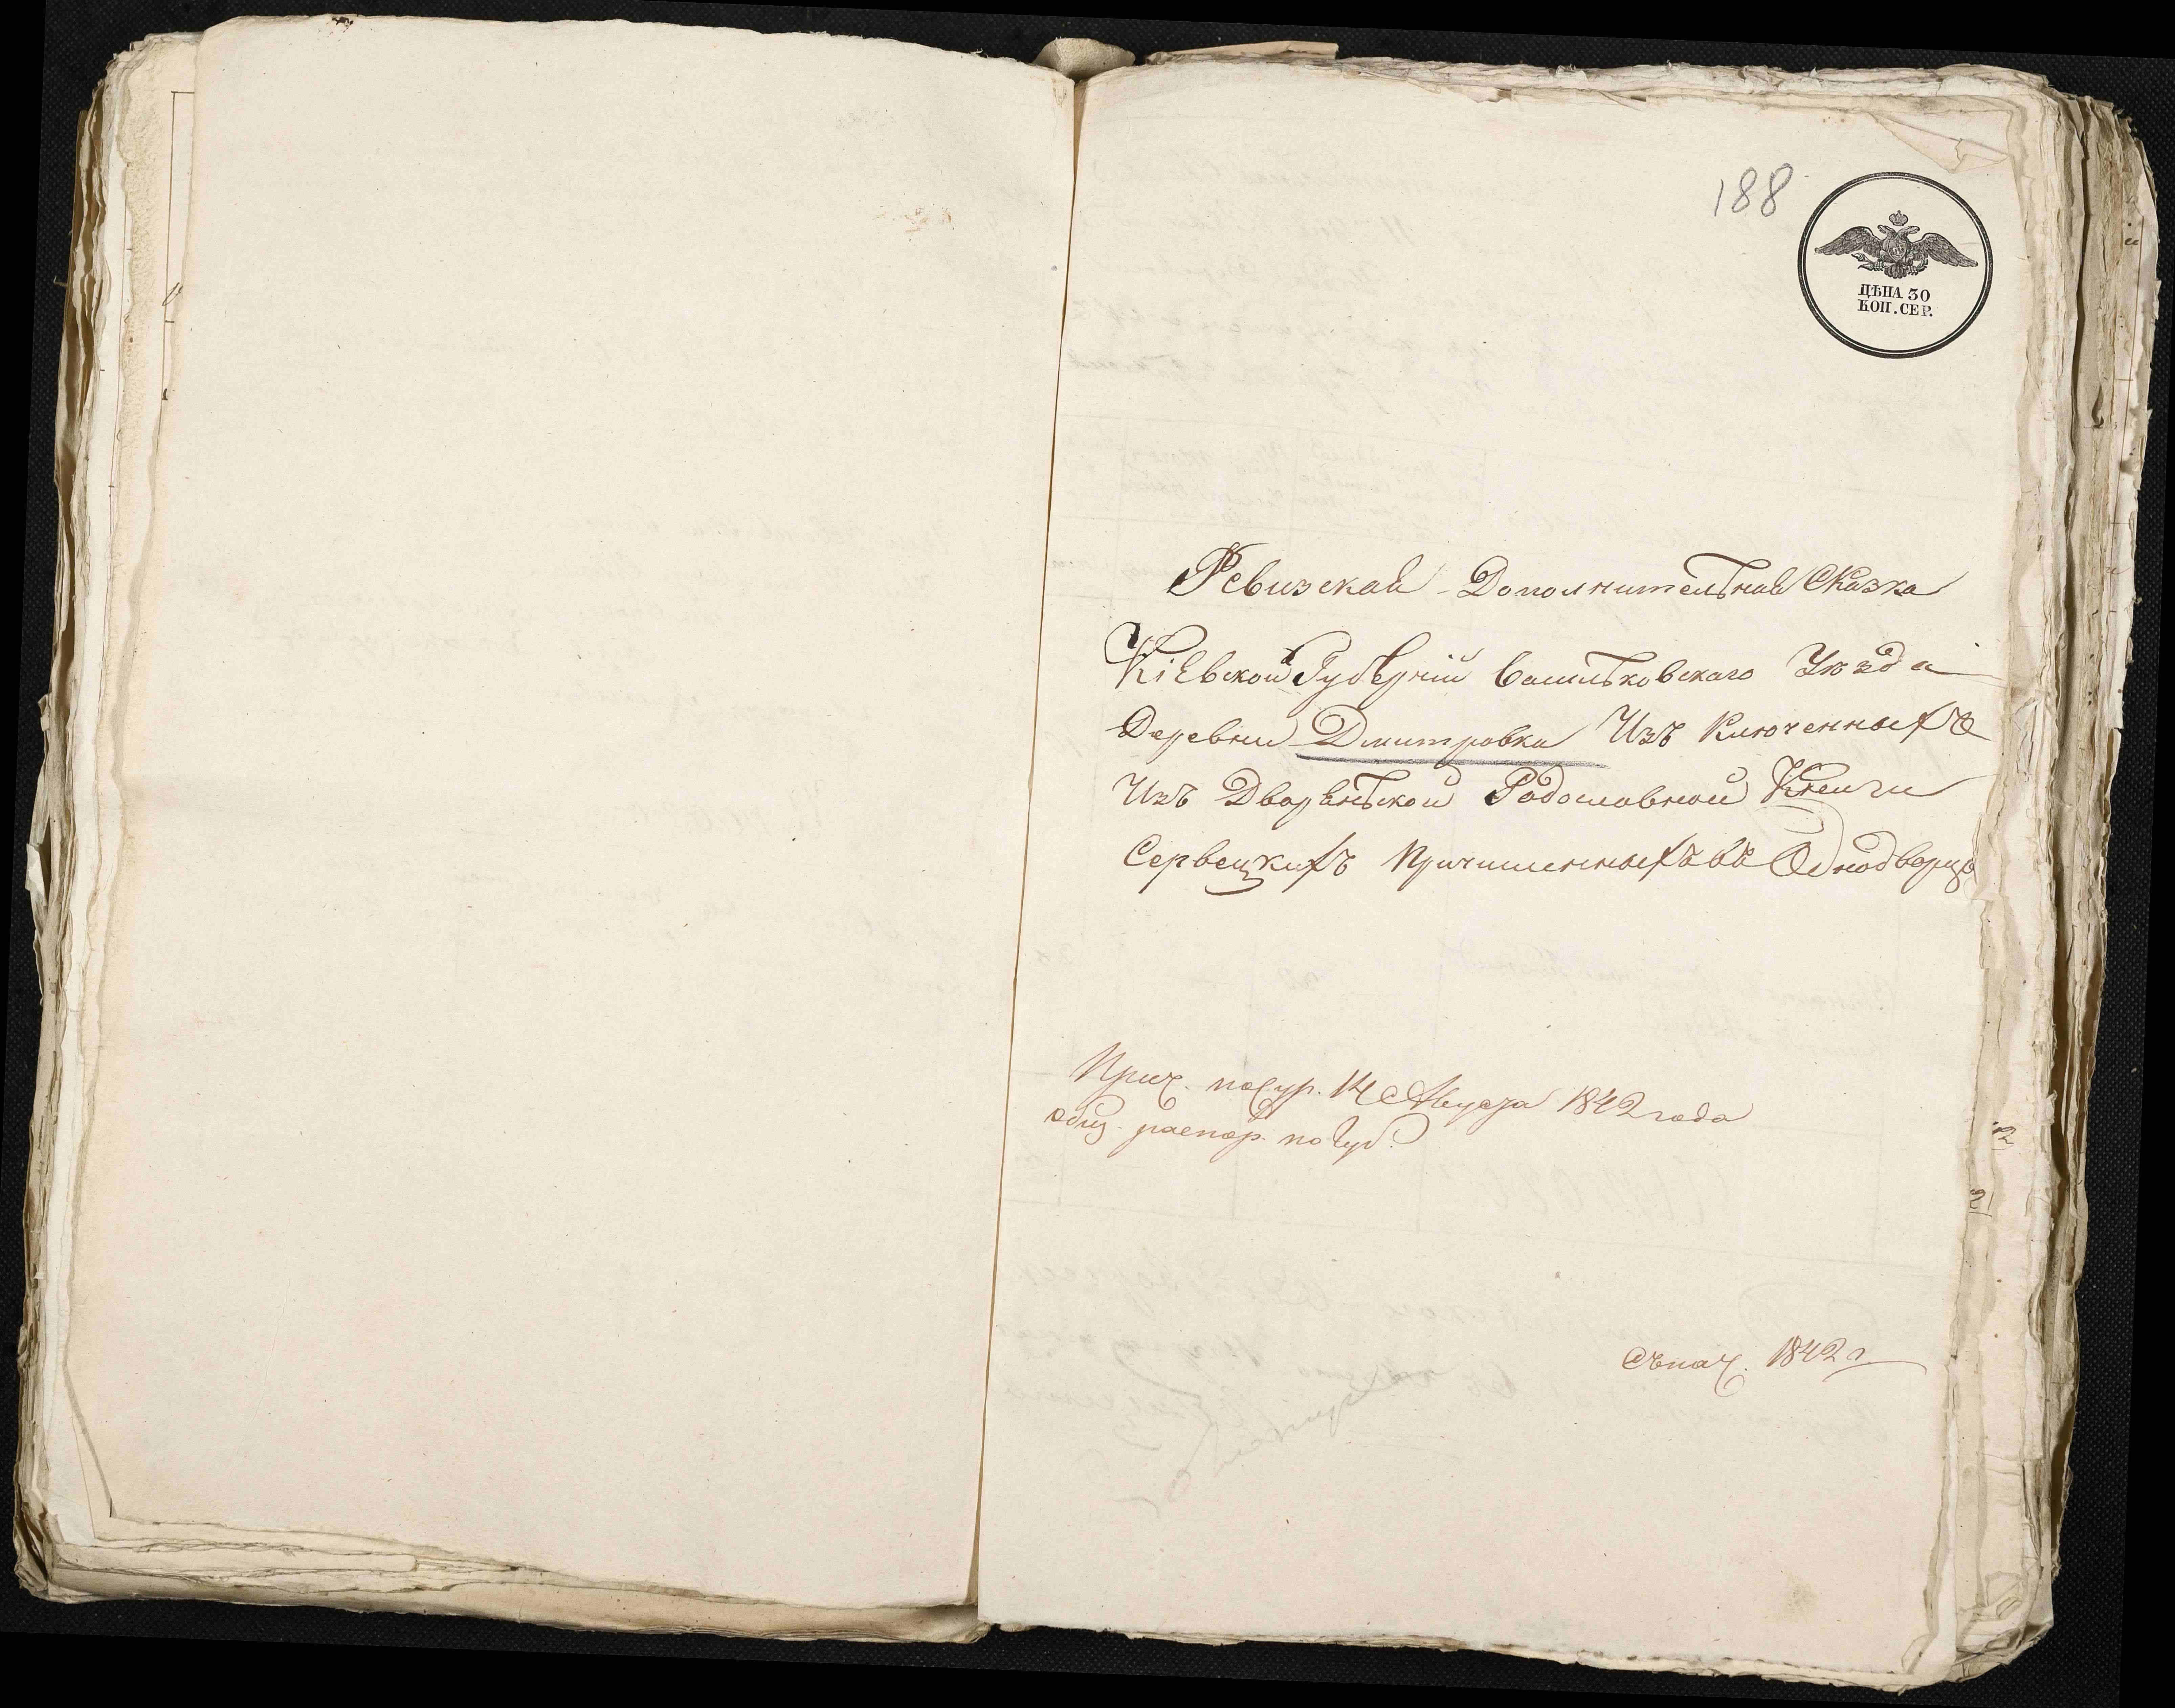 188
ЦѢНА 30
КОП. СЕР.
Ревизская Дополнительная Сказка
Кіевской Губерніи Васильковского Уезда
Деревни Дмитровка Изъ Ключенныхъ
Изъ Дворянской Родословной Книги
Сервецкихъ Причисленныхъ въ Однодворцы
Прич. по 14 Августа 1842 года
общ. распор. по Губ.
Съ нач. 1842 г